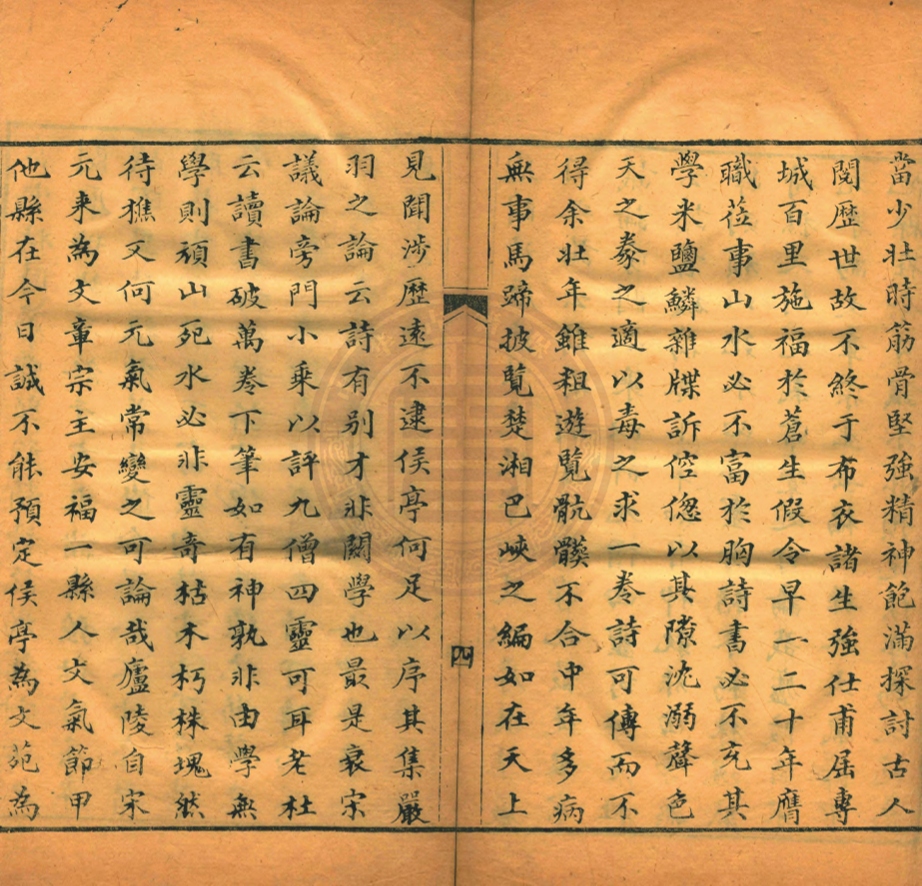 當少壯時筋骨堅強精神飽滿探討古人
閱歷世故不終于布衣諸生強仕甫屆專
城百里施福於蒼生假令早一二十年膺
職莅事山水必不富於胸詩書必不充其
學米鹽鱗雜牒訴倥偬以其隙沈溺聲色
天之豢之適以毒之求一卷詩可傳而不
得余壯年雖租遊覽骯髒不合中年多病
無事馬蹄披覽楚湘巴峽之編如在天上
四
見聞涉歷遠不逮侯亭何足以序其集嚴
羽之論云詩有别才非關學也最是衰宋
議論旁門小乘以評九僧四靈可耳老杜
云讀書破萬卷下筆如有神孰非由學無
學則頑山死水必非靈奇枯木朽株塊然
待樵又何元氣常變之可論哉廬陵自宋
元来為文章宗主安福一縣人文氣節甲
他縣在今日誠不能預定侯亭為文苑為